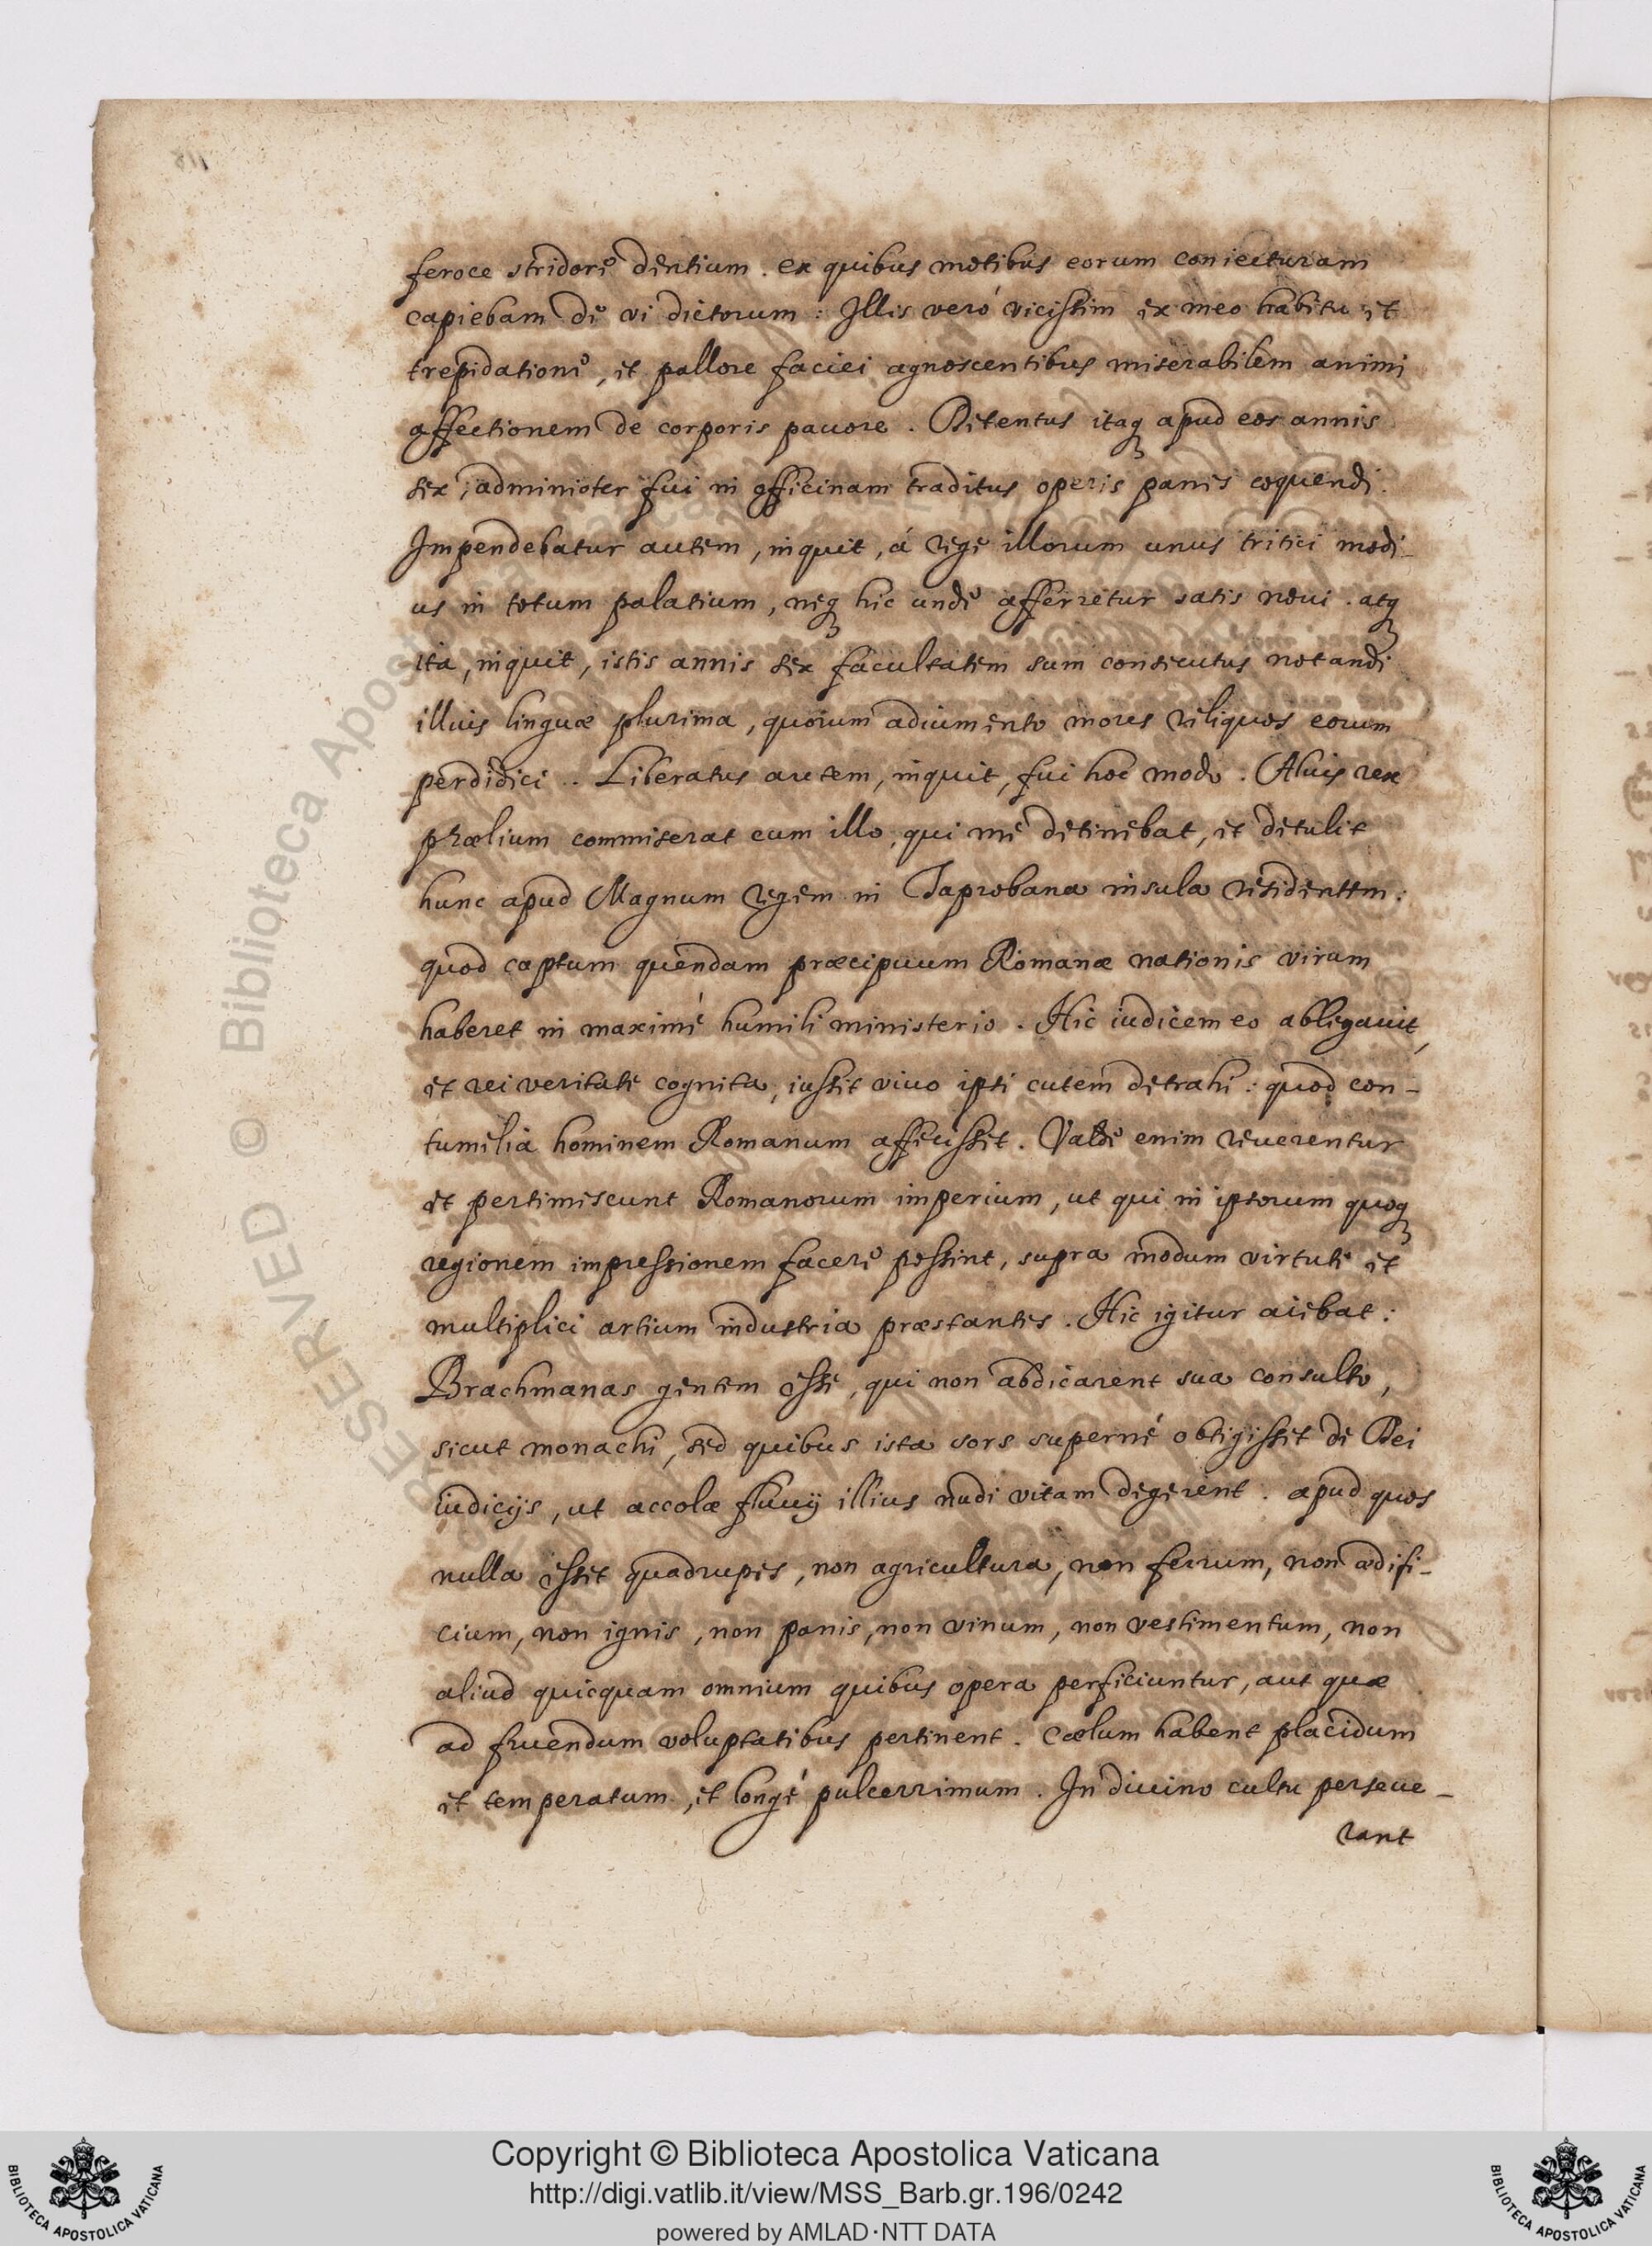 feroce stridore dentium. ex quibus motibus eorum coniecturam
capiebam de vi dictorum: Illis veró vicissim ex meo habitu et
trepidatione, et pallore faciei agnoscentibus miserabilem animi
affectionem de corporis pauore. Detentus itaq apud eos annis
sex, administer fui in officinam traditus operis panis coquendi.
Impendebatur autem, inquit, á rege illorum unus tritici modi-
us in totum palatium, neq hic unde afferretur satis noui. atq
ita, inquit, istis annis sex facultatem sum consecutus notandi
illius linguæ plurima, quorum adiumento mores reliquos eorum
perdidici.. Liberatus autem, inquit, fui hoc modo. Alius rex
prælium commiserat cum illo, qui me detinebat, et detulit
hunc apud Magnum regem in Taprobana insula residentem:
quod captum quendam præcipuum Romanæ nationis virum
haberet in maximé humili ministerio. Hic iudicem eo ablegauit,
et rei veritate cognita, iussit viuo ipsi cutem detrahi: quod con-
tumelia hominem Romanum affecisset. Valde enim reuerentur
et pertimescunt Romanorum imperium, ut qui in ipsorum quoq
regionem impressionem facere possint, supra modum virtute et
multiplici artium industria præstantes. Hic igitur aiebat:
Brachmanas gentem esse, qui non abdicarent sua consulto,
sicut monachi, sed quibus ista sors superné obtigisset de Dei
iudicijs, ut accolæ fluuij illius nudi vitam degerent. apud quos
nulla esset quadrupes, non agricultura, non ferrum, non ædifi-
cium, non ignis, non panis, non vinum, non vestimentum, non
aliud quicquam omnium quibus opera perficiuntur, aut quæ
ad fruendum voluptatibus pertinent. Cælum habent placidum
et temperatum, et longé pulcerrimum. In diuino cultu perseue-
rant
RESERVED © Biblioteca Apostolica Vaticana
Copyright © Biblioteca Apostolica Vaticana
http://digi.vatlib.it/view/MSS_Barb.gr.196/0242
powered by AMLAD·NTT DATA
BIBLIOTECA APOSTOLICA VATICANA
BIBLIOTECA APOSTOLICA VATICANA